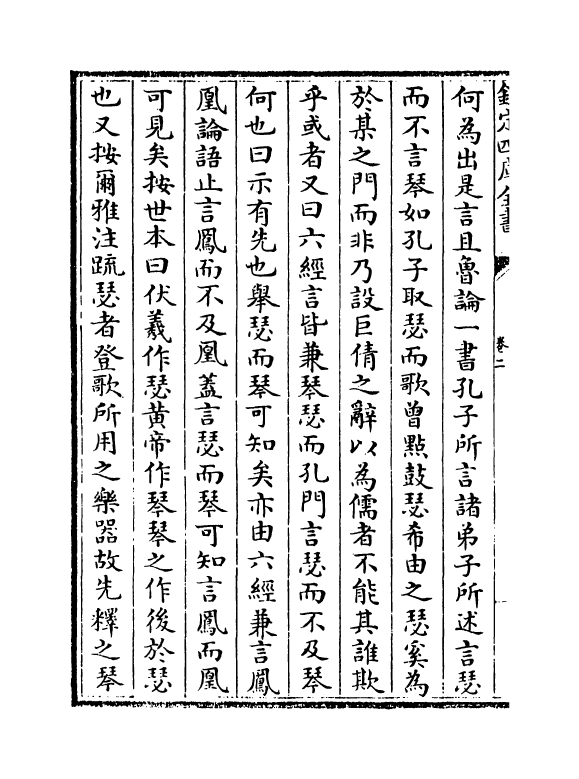 欽定四庫全書
卷二
何為出是言且魯論一書孔子所言諸弟子所述言瑟
而不言琴如孔子取瑟而歌曾點鼓瑟希由之瑟奚為
於某之門而非乃設巨倩之辭以為儒者不能其誰欺
乎或者又曰六經言皆兼琴瑟而孔門言瑟而不及琴
何也曰示有先也舉瑟而琴可知矣亦由六經兼言鳳
凰論語止言鳳而不及凰蓋言瑟而琴可知言鳳而凰
可見矣按世本曰伏羲作瑟黃帝作琴琴之作後於瑟
也又按爾雅注䟽瑟者登歌所用之樂器故先釋之琴